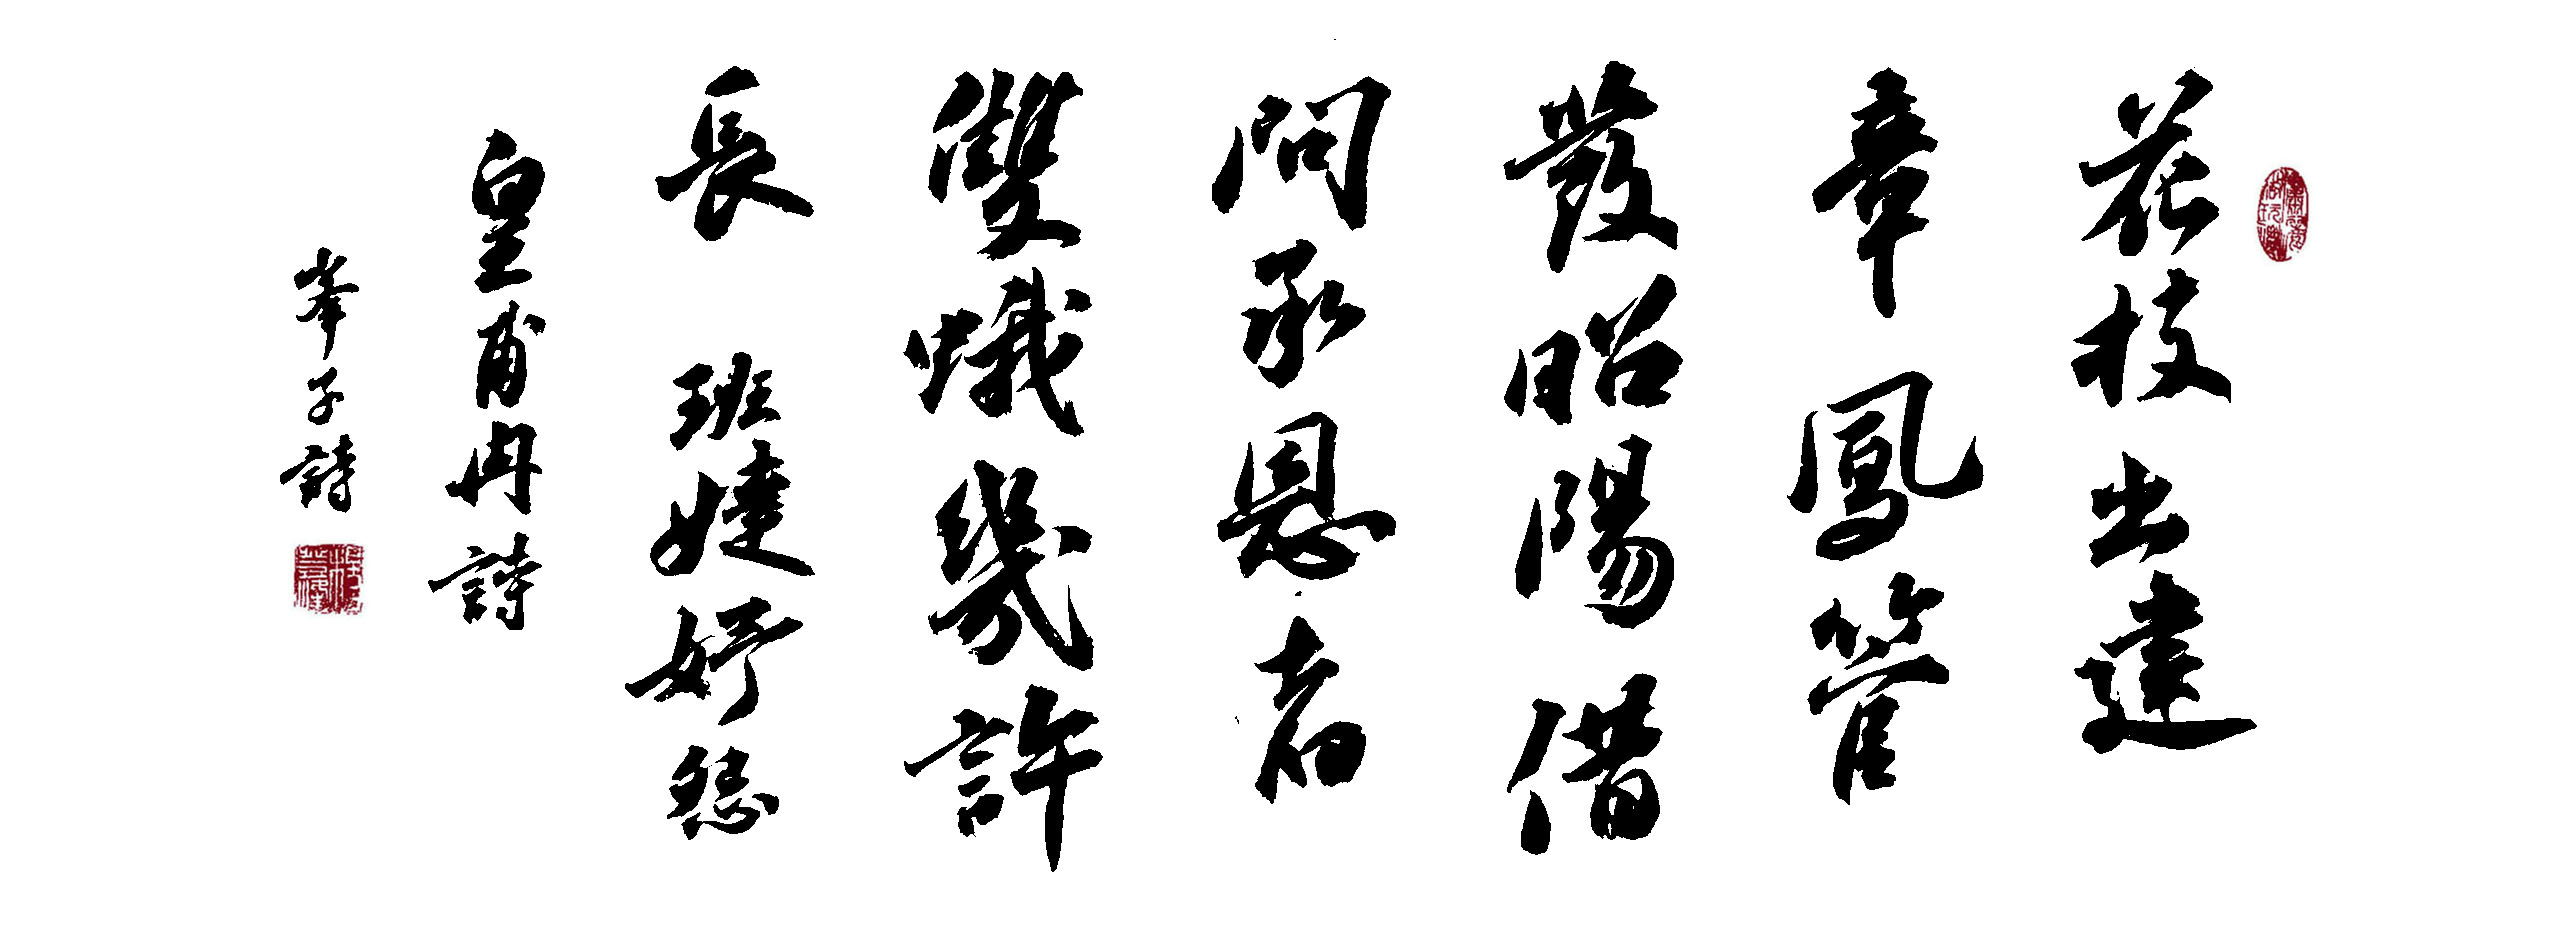 花枝出建
章鳳管
發昭陽借
問承恩者
雙蛾幾許
長 班婕妤怨
皇甫冉詩
峯子詩